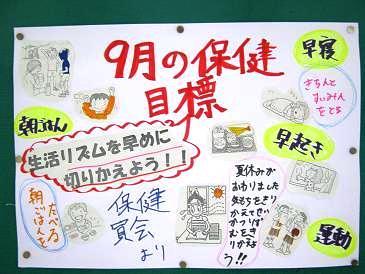 9月の保健
目標
早寝
きちんと
すいみん
をとる
朝ごはん
生活リズムを早めに
切りかえよう!!
早起き
朝ごはんを
たべる
保健
委員会
より
夏休みが
おわりました
気もちをきり
かえてせい
かつリズ
ムをきり
かえよ
う!!
運動